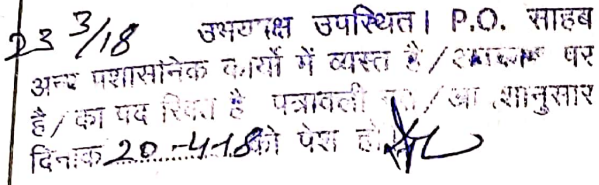 23 3/18 उभयपक्ष उपस्थित। P.O. साहब
अन्य प्रशासनिक कार्यो में व्यस्त है / पर
है / का पद रिक्त है पत्रावली /
दिनांक 20-4-18 को पेश हो।